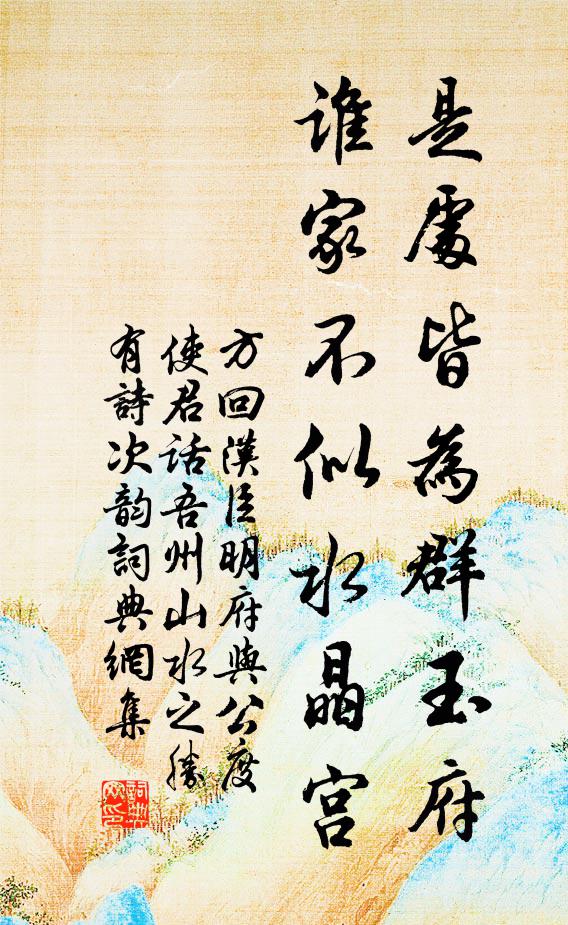 是處皆為群玉府
誰家不似水晶宮
方回漢臣明府與公度
使君話吾州山水之勝
有詩次韵詞典網集